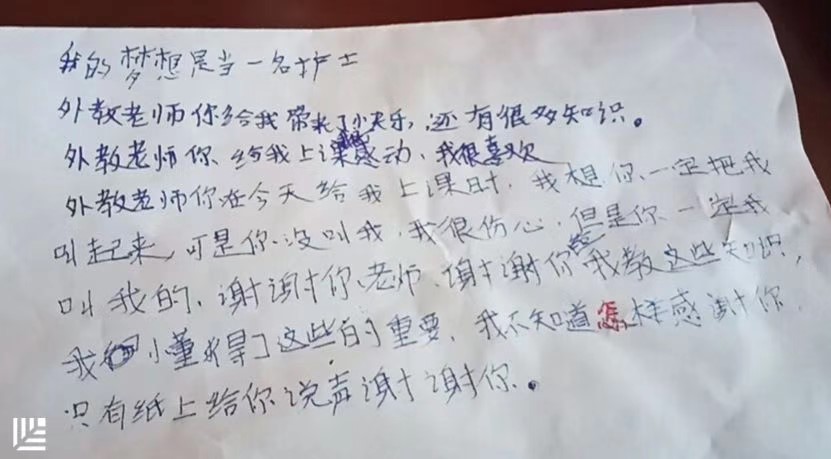 我的梦想是当一名护士
外教老师你给我带来了快乐,还有很多知识。
外教老师你给我上课感动,我很喜欢
外教老师你在今天给我上课时,我想你一定把我
叫起来,可是你没叫我,我很伤心,但是你一定我
叫我的,谢谢你老师,谢谢你我教这些知识,
我懂得了这些的重要,我不知道怎样感谢你,
只有纸上给你说声谢谢你。